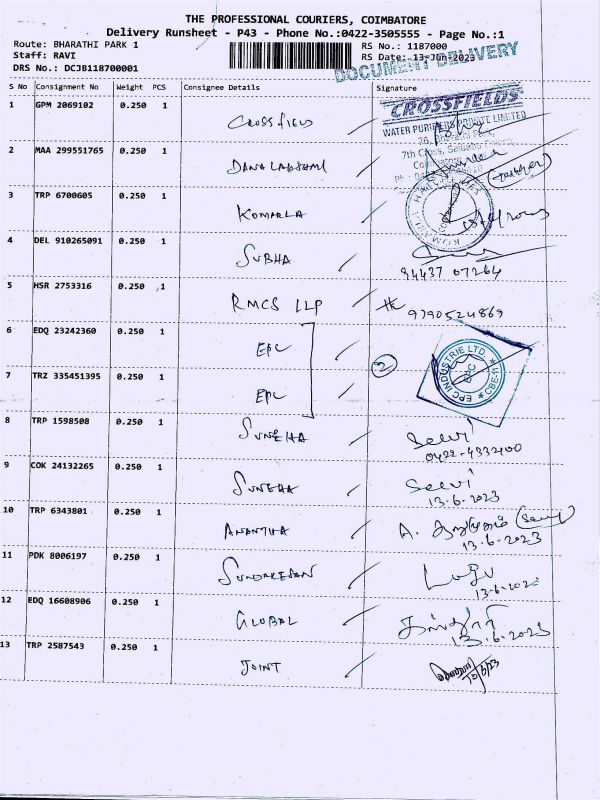 THE PROFESSIONAL COURIERS, COIMBATORE
Delivery Runsheet - P43 - Phone No.:0422-3505555 - Page No.:1
Route: BHARATHI PARK 1 RS No.: 1187000
Staff: RAVI RS Date: 13-Jun-2023
DRS No.: DCJB118700001
DOCUMENT DELIVERY
S No Consignment No Weight PCS Consignee Details Signature
1 GPM 2069102 0.250 1 CROSSFIELD
CROSSFIELDS
WATER PURIFIERS PRIVATE LIMITED
2 MAA 299551765 0.250 1 DANALAKSHMI
3 TRP 6700605 0.250 1 KOMARLA
4 DEL 910265091 0.250 1 SUBHA
94437 07264
5 HSR 2753316 0.250 1 RMCS LLP
9790524869
6 EDQ 23242360 0.250 1 EPC
2
EPC INDUSTRIE LTD.
7 TRZ 335451395 0.250 1 EPC
8 TRP 1598508 0.250 1 SUNEHA Selvi
0422-4332400
9 COK 24132265 0.250 1 SUNEHA Selvi
13.6.2023
10 TRP 6343801 0.250 1 ANANTHA A.
13.6.2023
11 PDK 8006197 0.250 1 SUNDARESAN
13.6.2023
12 EDQ 16608906 0.250 1 GLOBAL
13.6.2023
13 TRP 2587543 0.250 1 JOINT